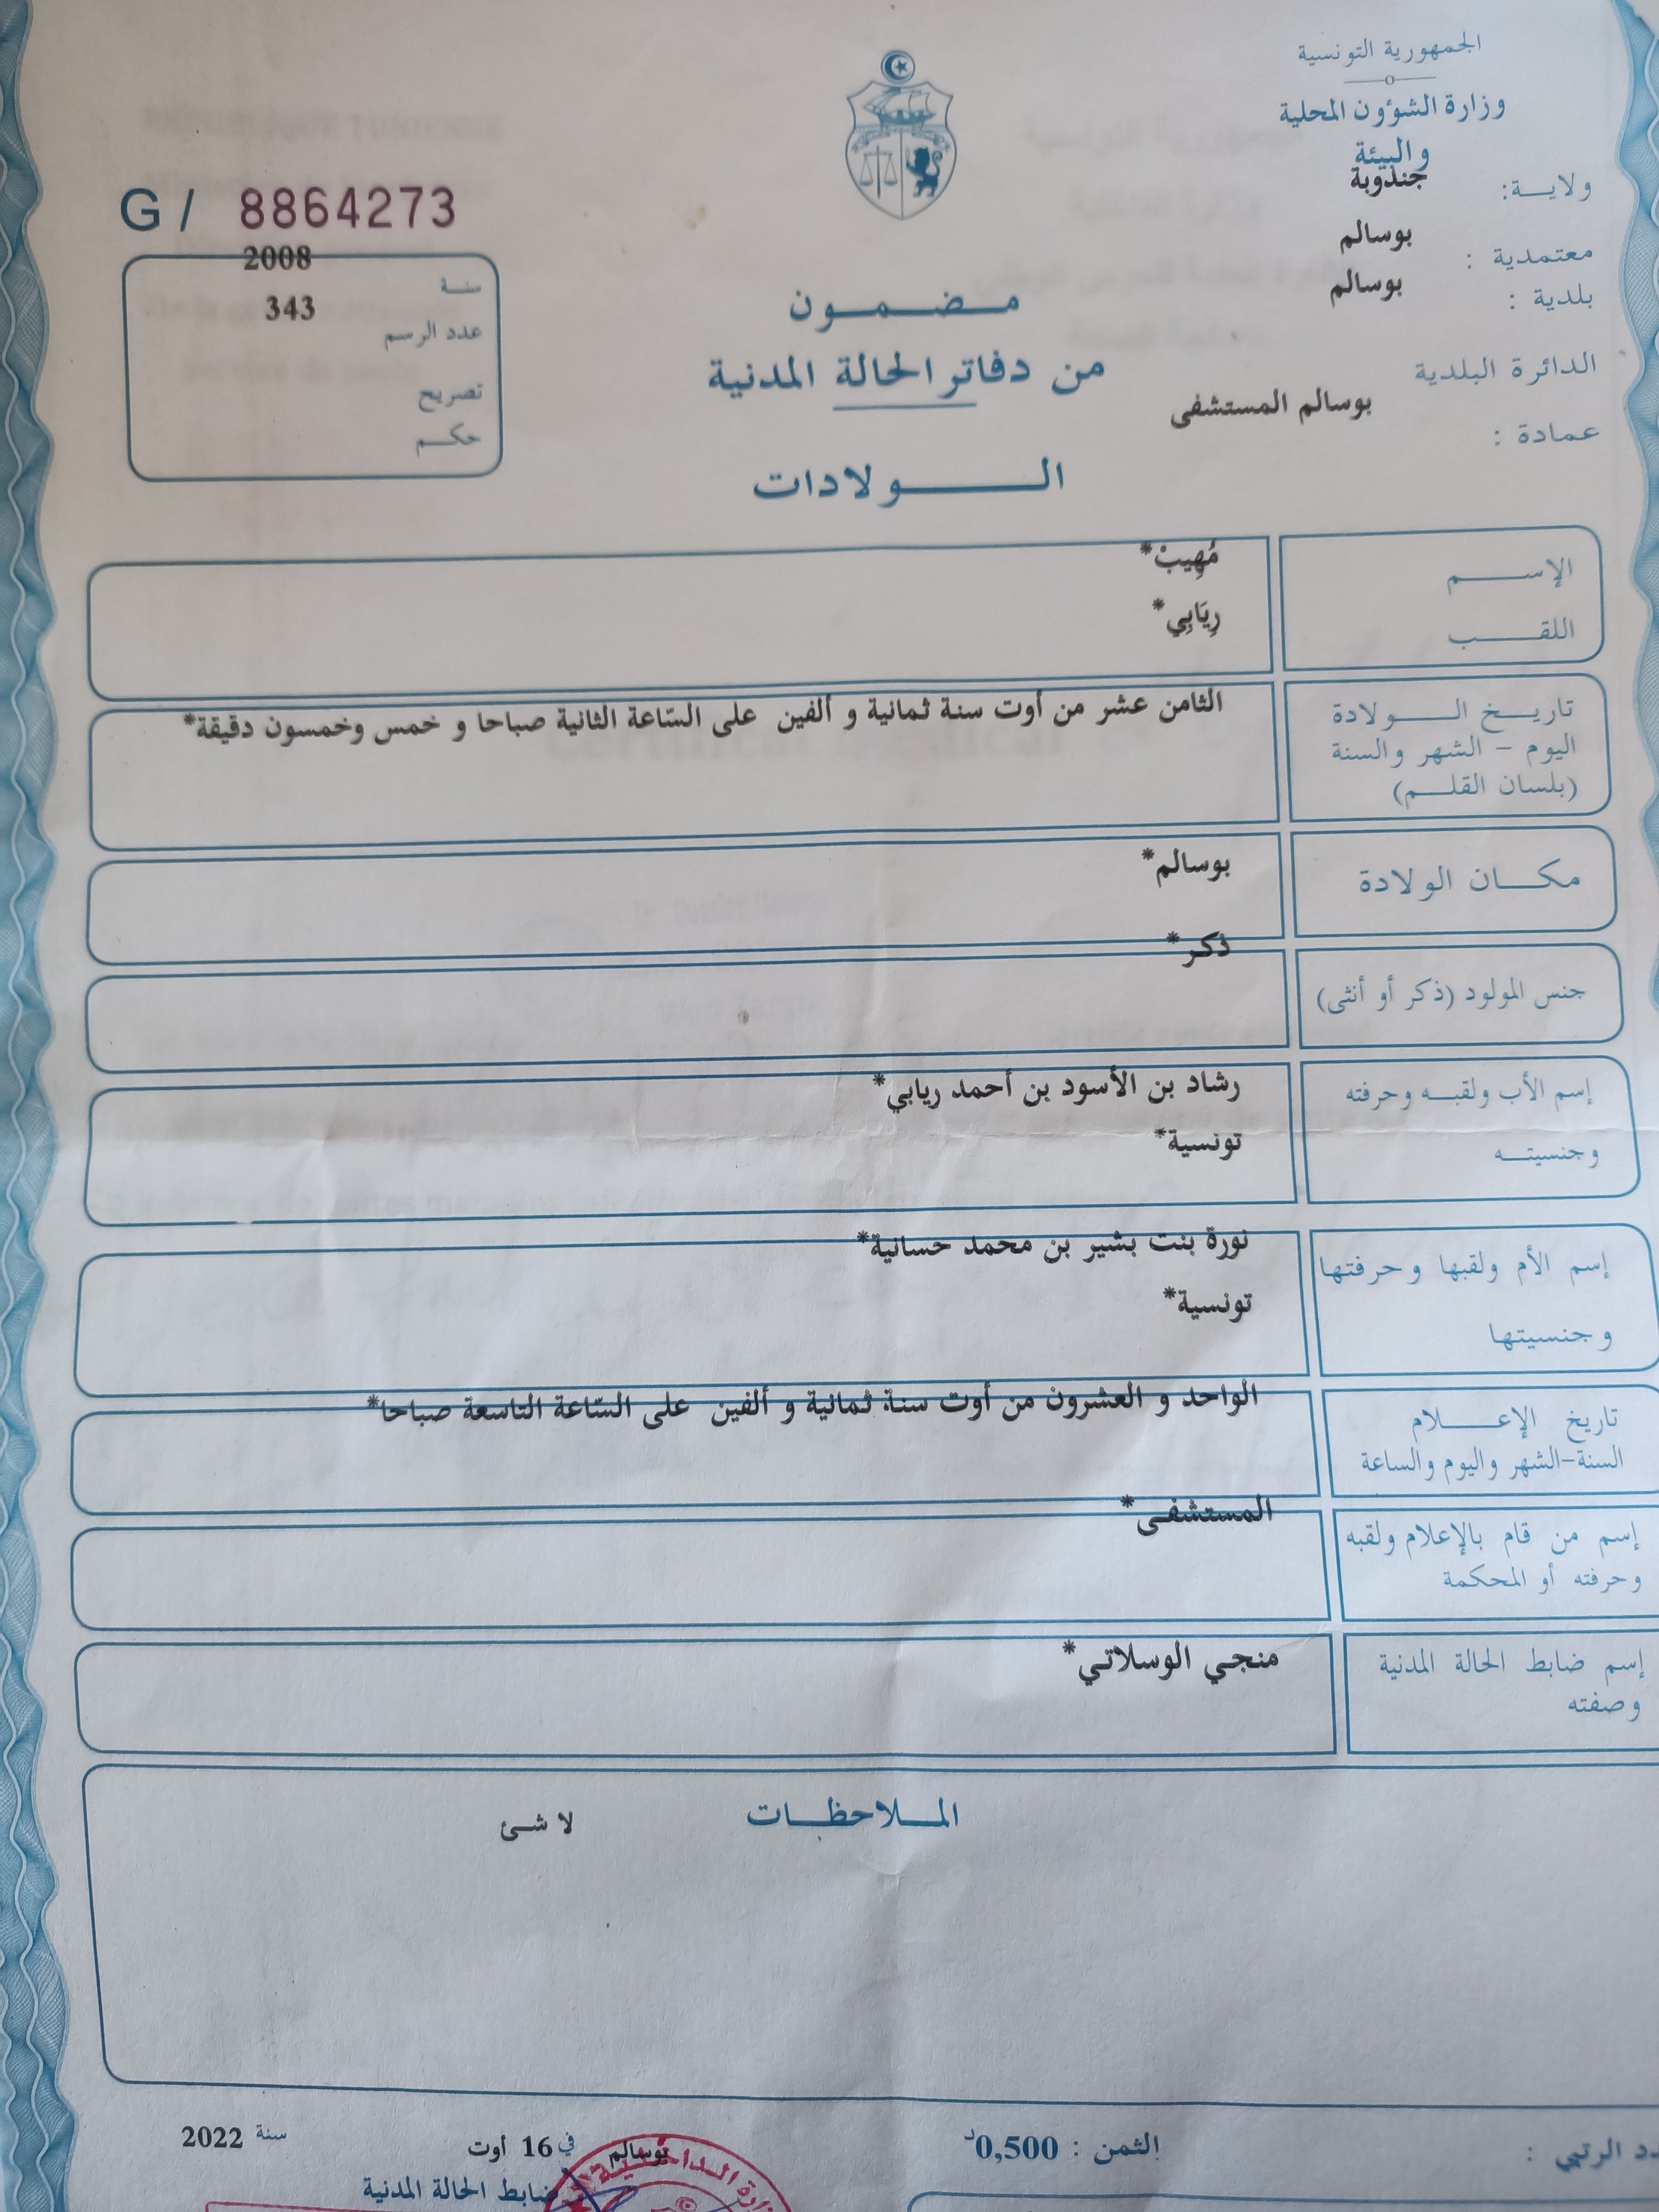 الجمهورية التونسية
وزارة الشؤون المحلية
والبيئة
ولاية: جندوبة
معتمدية : بوسالم
بلدية : بوسالم
الدائرة البلدية
بوسالم المستشفى
عمادة :
G / 8864273
سنة 2008
عدد الرسم 343
تصريح
حكم
مضمون
من دفاتر الحالة المدنية
الولادات
الإسم مُهِيبْ*
اللقب رِيَابِي*
تاريخ الولادة
اليوم – الشهر والسنة
(بلسان القلم)
الثامن عشر من أوت سنة ثمانية و ألفين على السّاعة الثانية صباحا و خمس وخمسون دقيقة*
مكان الولادة بوسالم*
جنس المولود (ذكر أو أنثى) ذكر*
إسم الأب ولقبه وحرفته رشاد بن الأسود بن أحمد ريابي*
وجنسيته تونسية*
إسم الأم ولقبها وحرفتها نورة بنت بشير بن محمد حسانية*
وجنسيتها تونسية*
تاريخ الإعلام
السنة-الشهر واليوم والساعة
الواحد و العشرون من أوت سنة ثمانية و ألفين على السّاعة التاسعة صباحا*
إسم من قام بالإعلام ولقبه
وحرفته أو المحكمة
المستشفى*
إسم ضابط الحالة المدنية
وصفته
منجي الوسلاتي*
الملاحظات
لا شئ
الرتبي :
الثمن : 0,500د
بوسالم في 16 أوت سنة 2022
ضابط الحالة المدنية